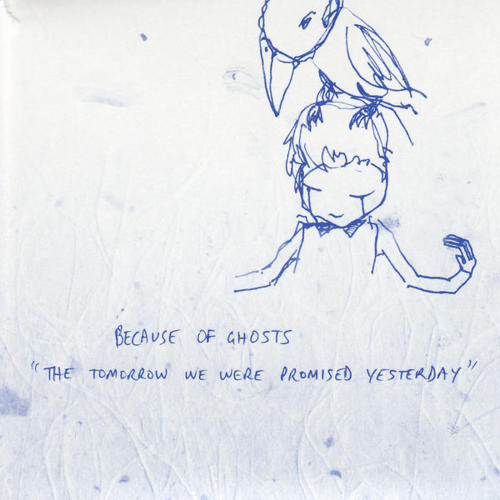 BECAUSE OF GHOSTS
"THE TOMORROW WE WERE PROMISED YESTERDAY"